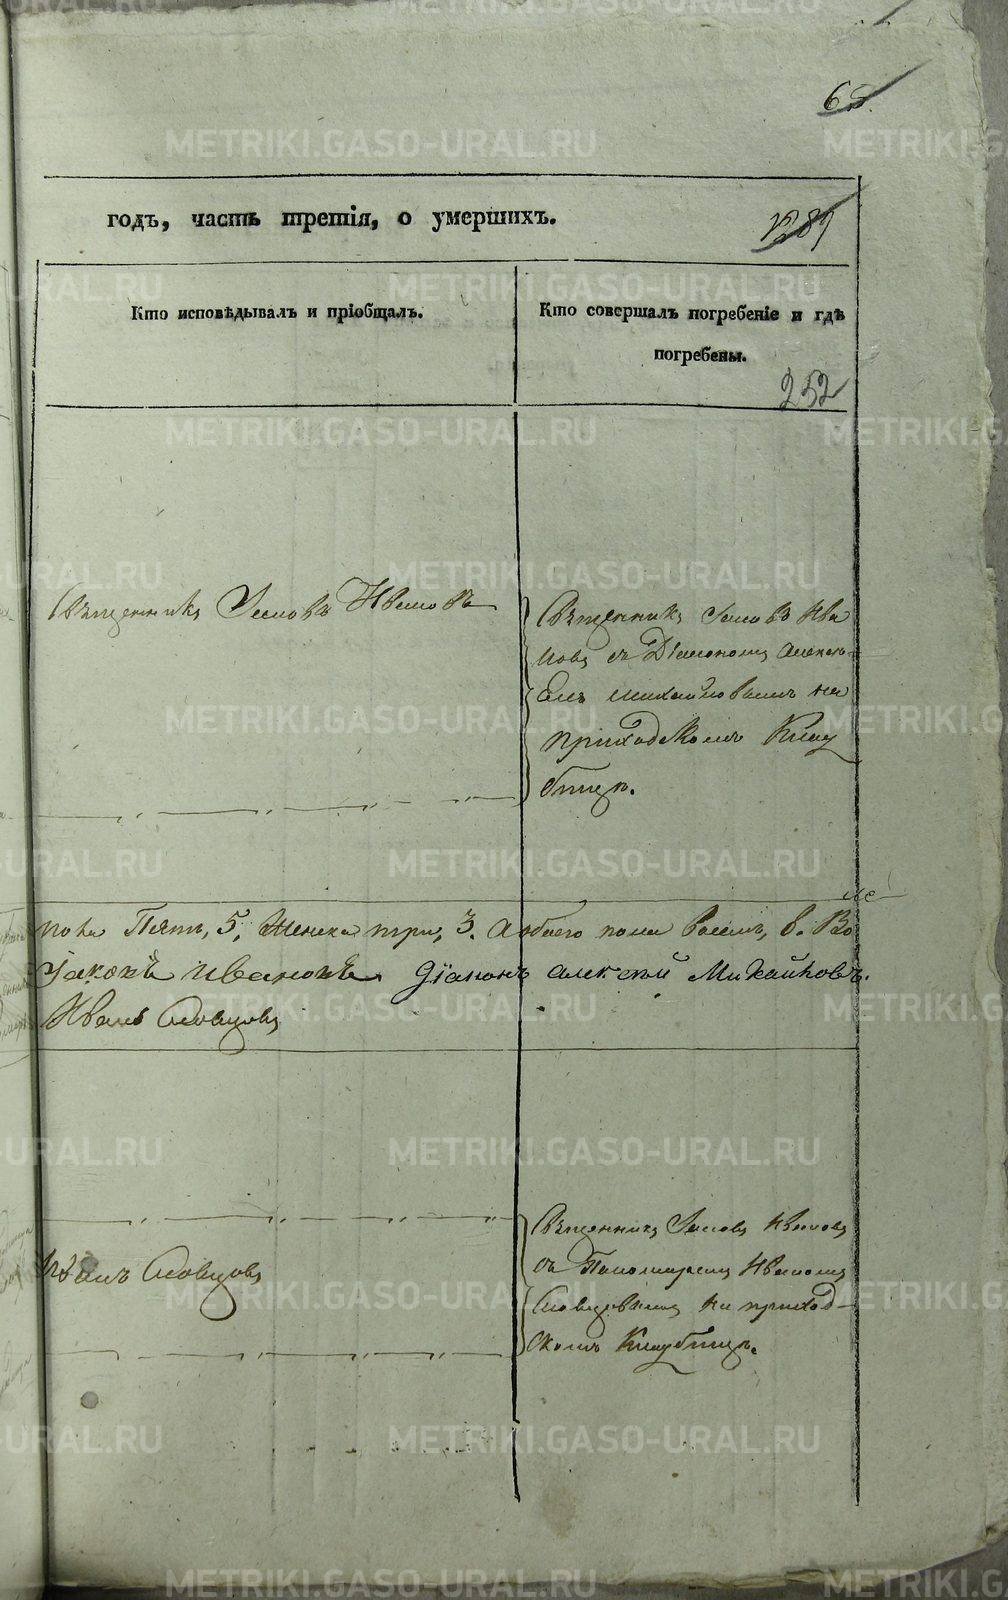 68.
годъ, часть третія, о умершихъ.
1289
Кто исповѣдывалъ и пріобщалъ.
Кто совершалъ погребеніе и гдѣ
погребены.
252
Священникъ Іаковъ Ивановъ
Священникъ Іаковъ Ива
новъ съ Діакономъ Алексѣ-
емъ Михайловымъ на
приходскомъ Клад
бищѣ.
пола Пять, 5, Женска три, 3. А обоего пола восемь, 8. Во
Іаковъ Ивановъ Діаконъ Алексѣй Михайловъ.
Иванъ Словцовъ
Священникъ Іаковъ Ивановъ
Иванъ Словцовъ
съ Пономаремъ Иваномъ
Словцовымъ на приход-
скомъ Кладбищѣ.
METRIKI.GASO-URAL.RU